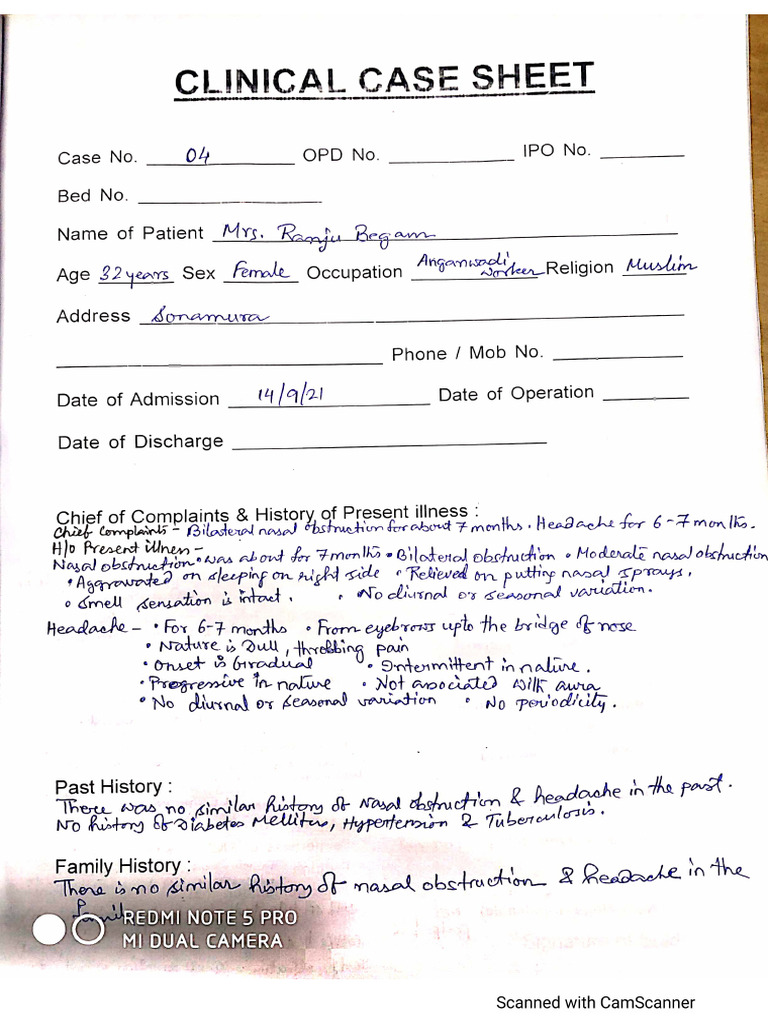 CLINICAL CASE SHEET
Case No. 04 OPD No. IPO No.
Bed No.
Name of Patient Mrs. Ranju Begam
Age 32 years Sex Female Occupation Anganwadi worker Religion Muslim
Address Sonamura
Phone / Mob No.
Date of Admission 14/9/21 Date of Operation
Date of Discharge
Chief of Complaints & History of Present illness :
Chief Complaints - Bilateral nasal obstruction for about 7 months. Headache for 6-7 months.
H/o Present illness -
Nasal obstruction • was about for 7 months • Bilateral obstruction • Moderate nasal obstruction
• Aggravated on sleeping on right side • Relieved on putting nasal sprays.
• Smell sensation is intact. • No diurnal or seasonal variation.
Headache - • For 6-7 months • From eyebrows upto the bridge of nose
• Nature is Dull, throbbing pain
• Onset is Gradual • Intermittent in nature.
• Progressive in nature • Not associated with aura
• No diurnal or seasonal variation • No periodicity.
Past History :
There was no similar history of Nasal obstruction & headache in the past.
No history of Diabetes Mellitus, Hypertension & Tuberculosis.
Family History :
There is no similar history of nasal obstruction & headache in the
family
REDMI NOTE 5 PRO
MI DUAL CAMERA
Scanned with CamScanner